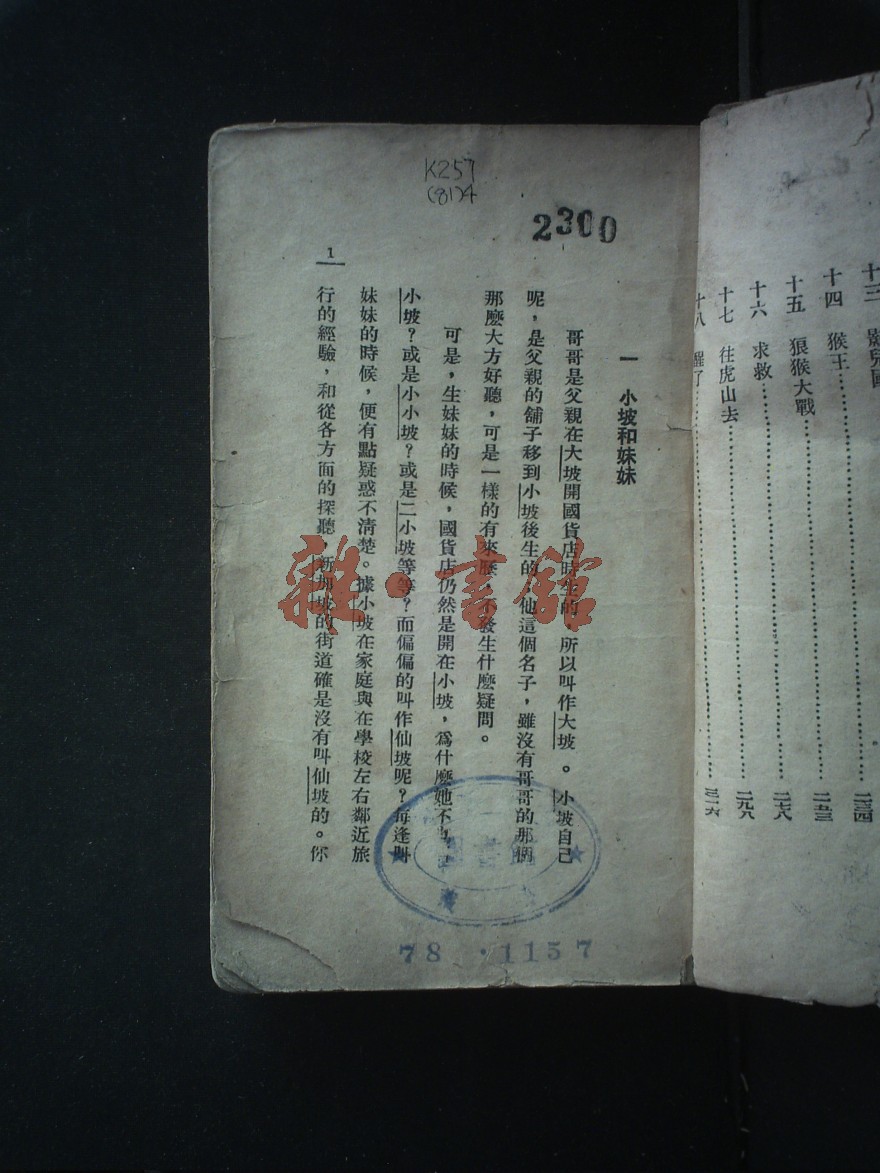 十三 影兒國……二三四
十四 猴王……二五三
十五 狼猴大戰
十六 求救……二七八
十七 往虎山去……二九八
十八 醒了……三一六
K257
(81)4
2300
一 小坡和妹妹
哥哥是父親在大坡開國貨店時生的,所以叫作大坡。小坡自己
呢,是父親的舖子移到小坡後生的;他這個名子,雖沒有哥哥的那個
那麼大方好聽,可是一樣的有來歷,不發生什麼疑問。
可是,生妹妹的時候,國貨店仍然是開在小坡,爲什麼她不
小坡?或是小小坡?或是二小坡等等?而偏偏的叫作仙坡呢?每逢叫
妹妹的時候,便有點疑惑不清楚。據小坡在家庭與在學校左右鄰近旅
行的經驗,和從各方面的探聽,新加坡的街道確是沒有叫仙坡的。你
1
雜·書館
78.1157